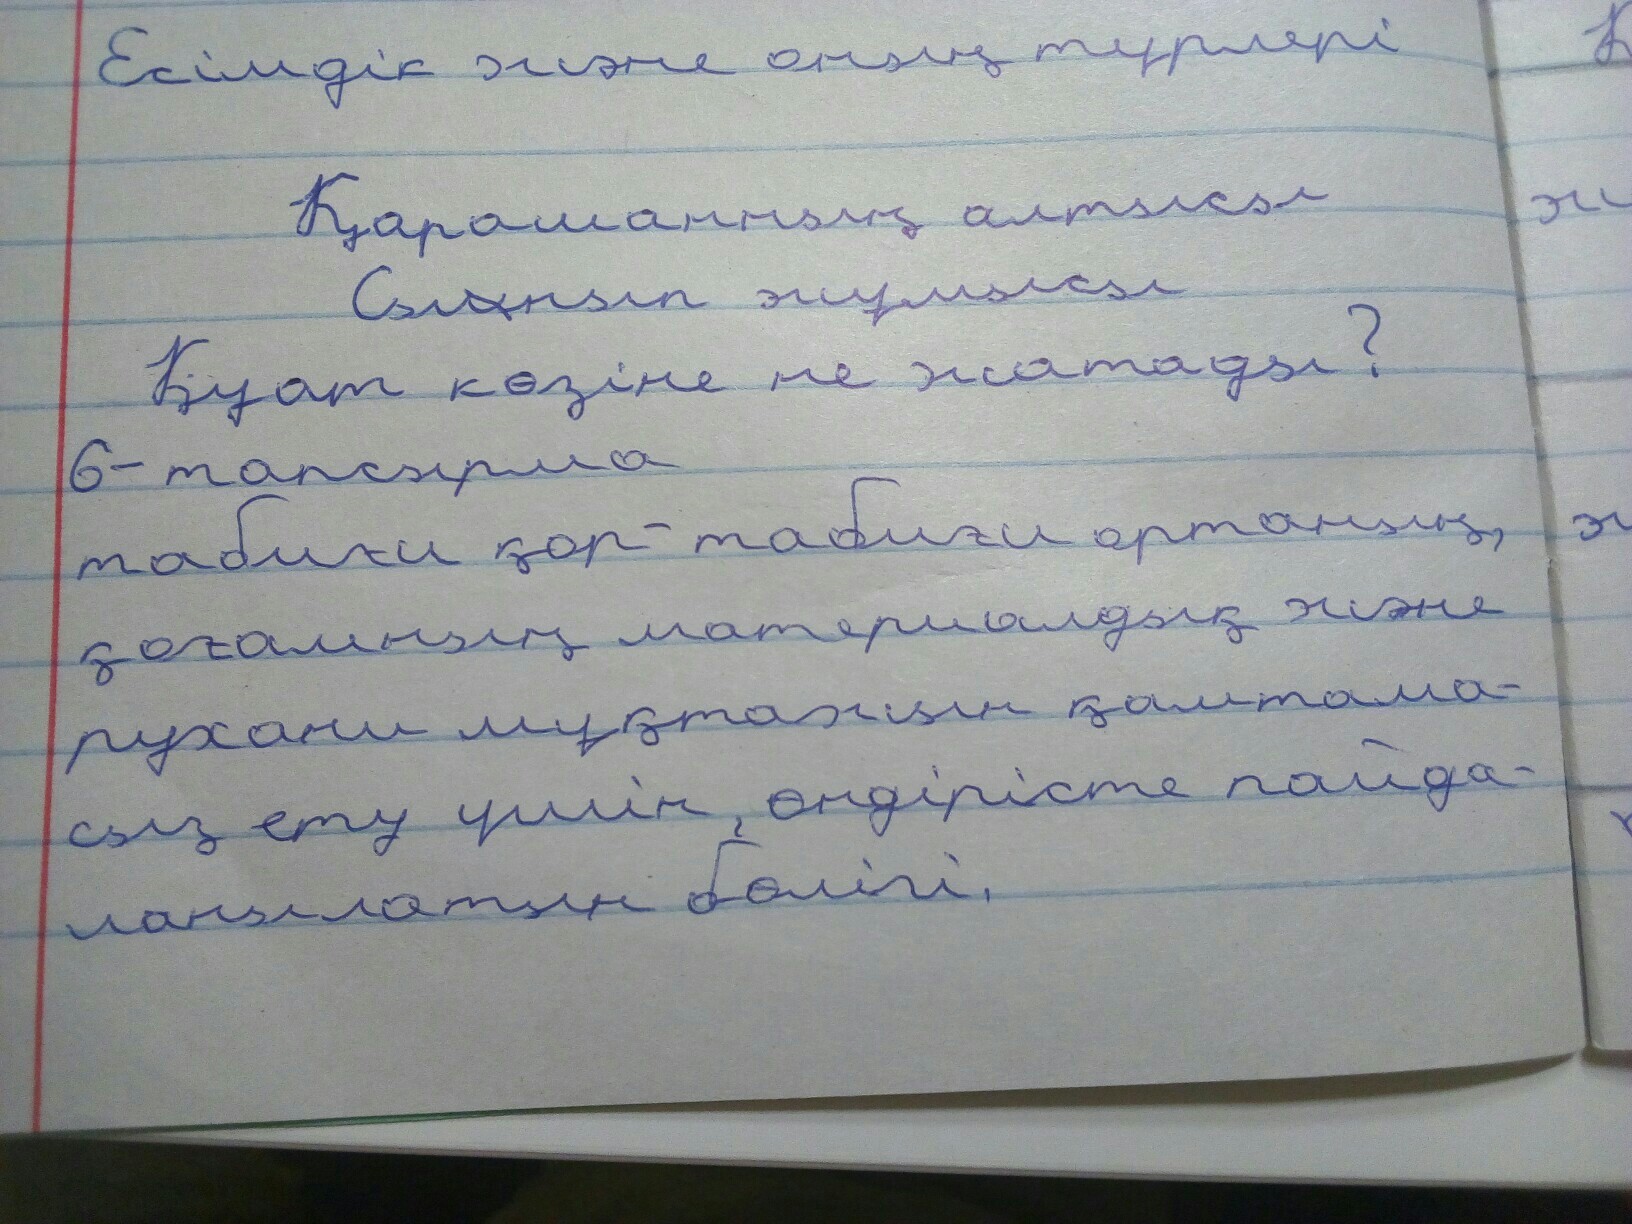 Есімдік және оның түрлері
Қарашаның алтысы
Сынып жұмысы
Қуат көзіне не жатады?
6-тапсырма
табиғи қор- табиғи ортаның,
қоғамның материалдық және
рухани мұқтажын қамтама-
сыз ету үшін, өндірісте пайда-
ланылатын бөлігі.